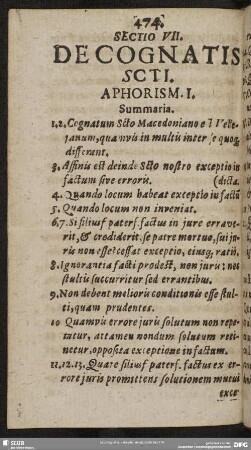 474.
SECTIO VII.
DE COGNATIS
SCTI.
APHORISM. I.
Summaria.
1.2. Cognatum Scto Macedoniano e
quamvis in multis inter se quoq;
different.
3. Affinis est deinde Scto nostro exceptio in
factum sive erroris. (dicta.
4. Quando locum habeat exceptio in facti
5. Quando locum non inveniat.
6.7. Si filiusf. patersf. factus in jure errave-
rit, & crediderit se patre mortuo, sui ju-
ris non esse? cessat exceptio, ejusq; ratio.
8. Ignorantia facti prodest, non juris: nec
stultis succurritur sed errantibus.
9. Non debent melioris conditionis esse stul-
ti, quam prudentes.
10 Quamvis errore juris solutum non repe-
tatur, attamen nondum solutum reti-
netur, opposita exceptione in factum.
11.12.13. Quare filiusf. patersf. factus ex er-
rore juris promittens solutionem mutui
exce
SLUB
DFG